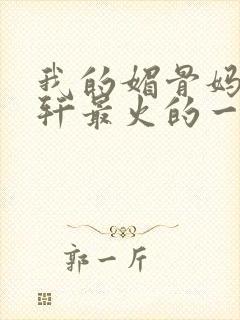 我的媚骨妈
轩最火的一
郭一斤